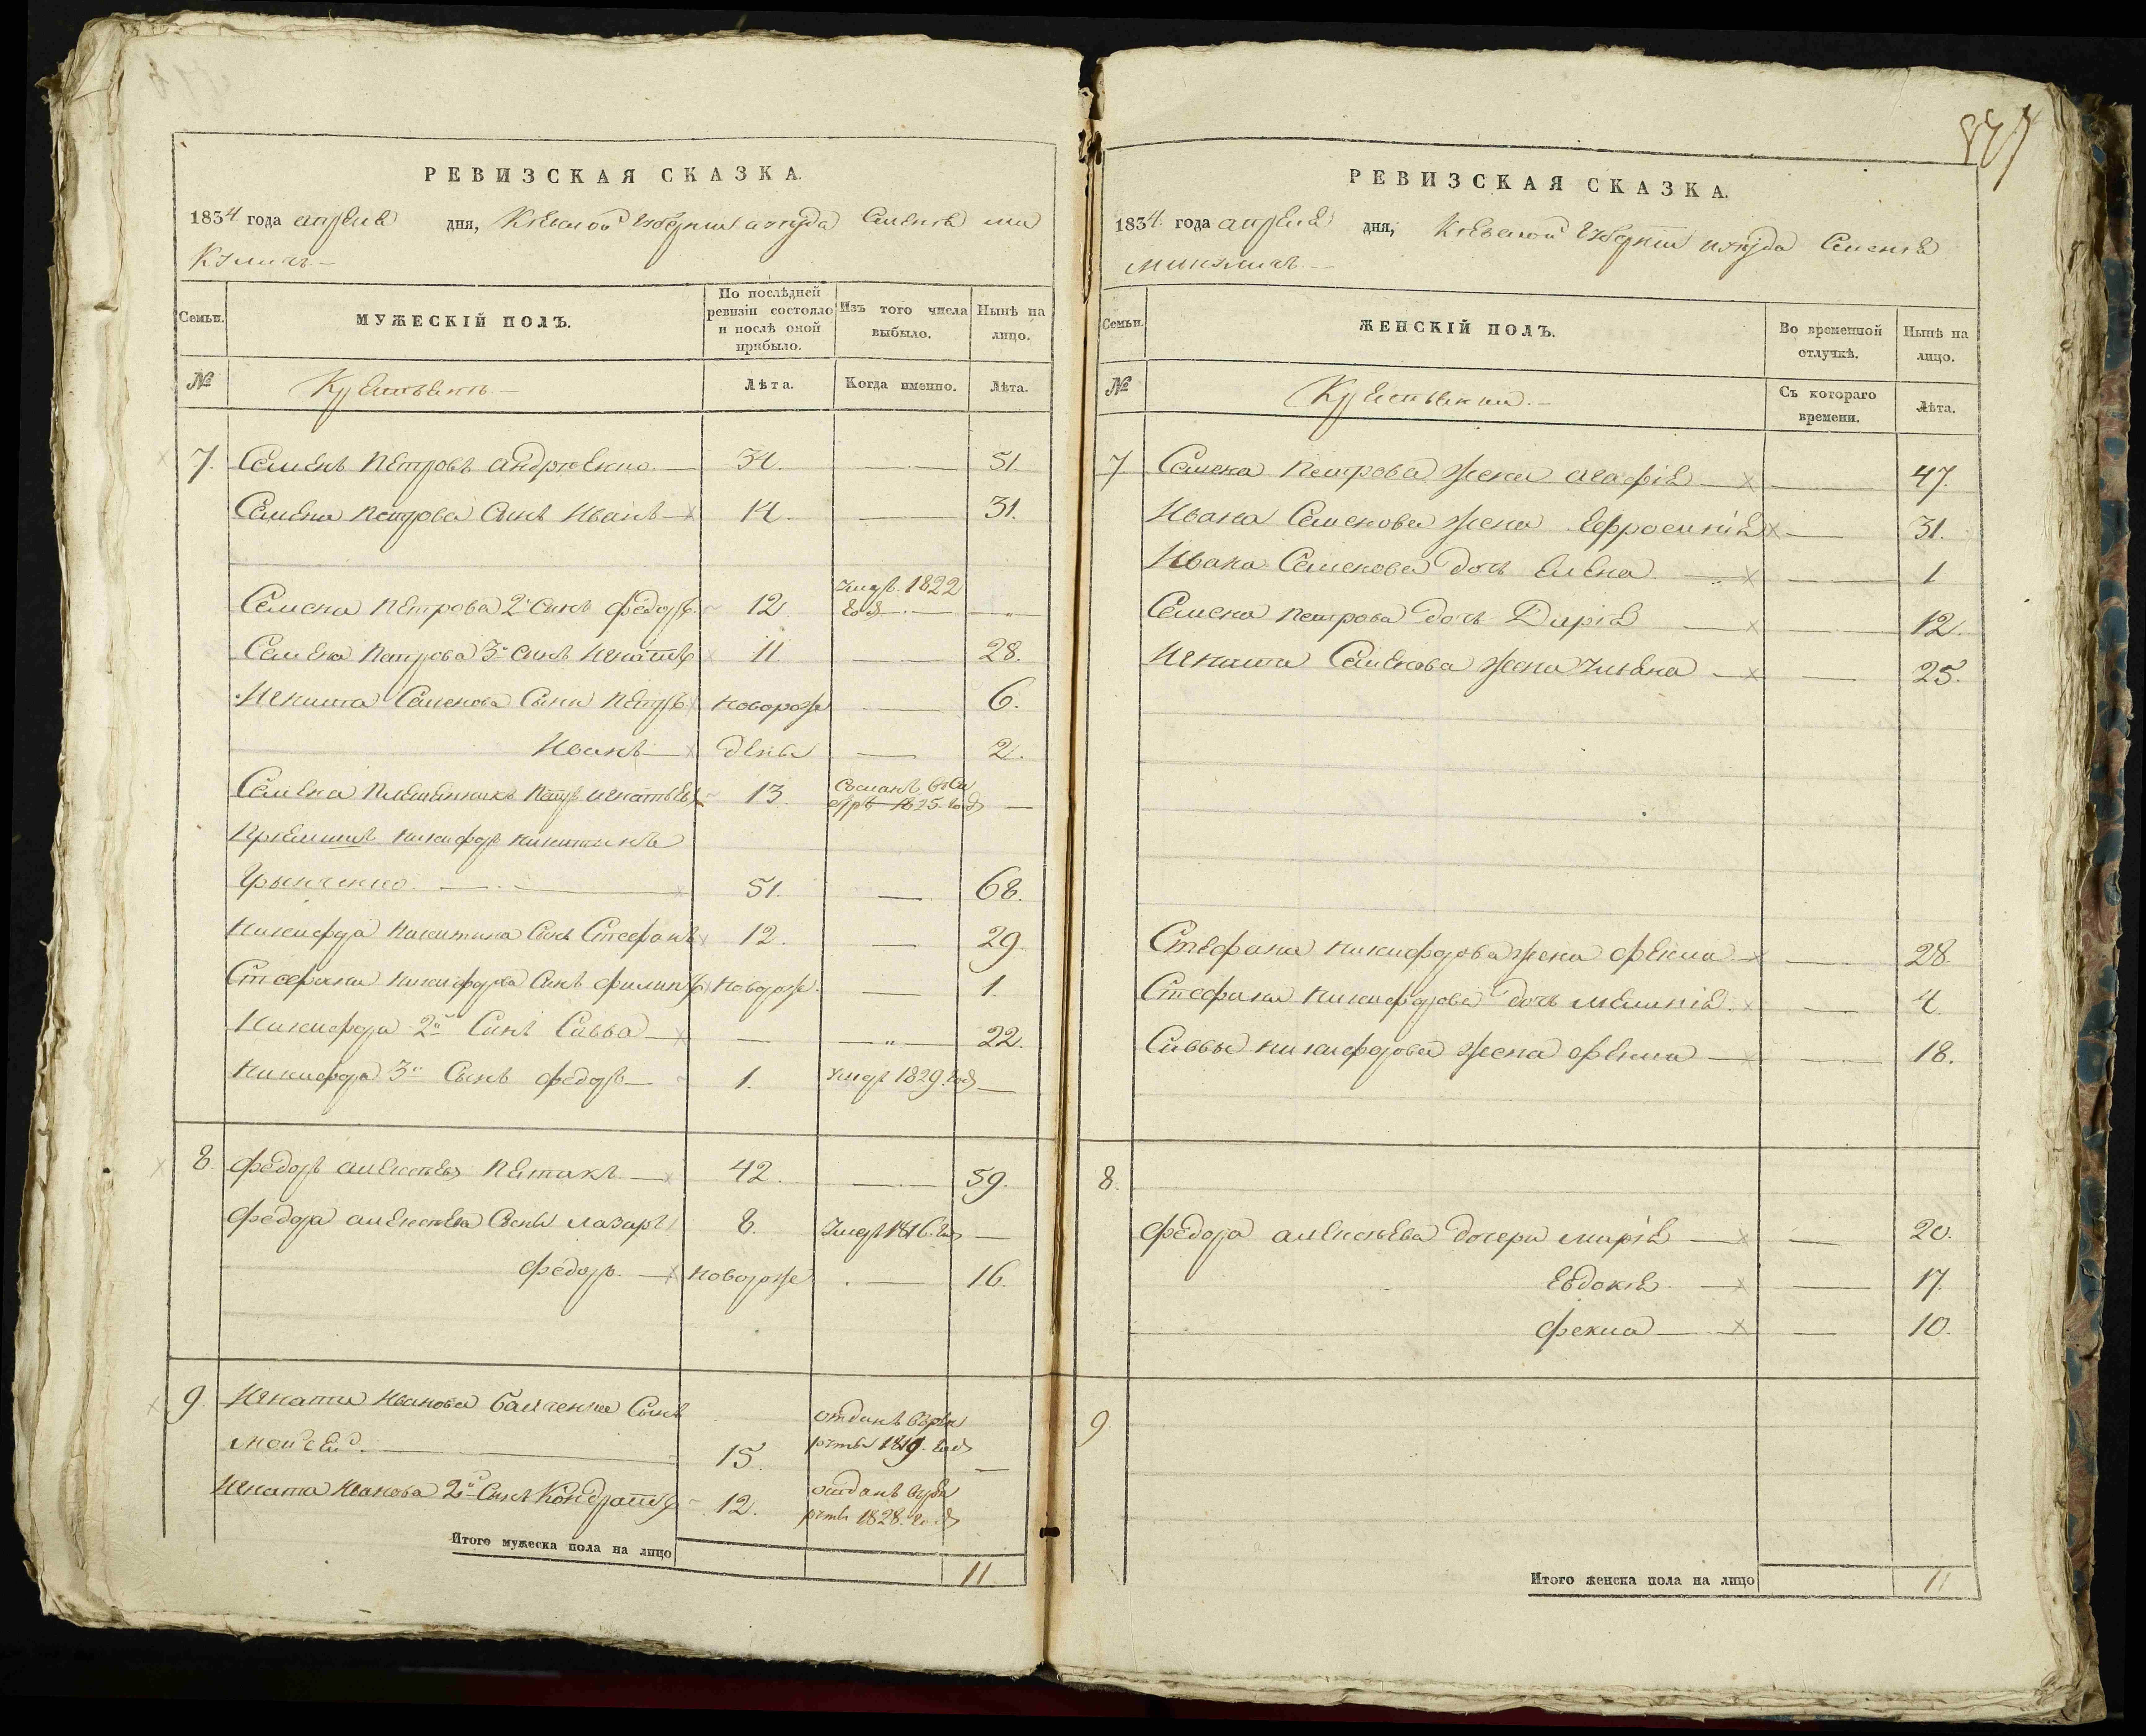 887
РЕВИЗСКАЯ СКАЗКА.
1834 года апреля дня, Кіевской Губерніи и уезда Селенія Ми
куличъ.
Семьи. МУЖЕСКІЙ ПОЛЪ. По послѣдней ревизіи состояло и послѣ оной прибыло. Изъ того числа выбыло. Нынѣ на лицо.
№ Крестьянъ. Лѣта. Когда именно. Лѣта.
7. Семенъ Петровъ Андрюенко 34. 51.
Семена Петрова Сынъ Иванъ 14. 31.
Умеръ 1822
Семена Петрова 2й Сынъ Федоръ 12 года
Семена Петрова 3й Сынъ Игнатій 11. 28.
Игната Семенова Сыны Петръ новорож 6.
Иванъ дены 2.
Семена Племенникъ Петръ Игнатьевъ 13. Сосланъ въ Си
1825. года
Пріемышъ Никифоръ Никитинъ
Грынченко. 51. 68.
Никифора Никитина Сынъ Стефанъ 12. 29.
Стефана Никифорова Сынъ Филипъ новорож. 1.
Никифора 2й Сынъ Савва 22.
Никифора 3й Сынъ Федоръ 1. Умеръ 1829. года
8. Федоръ Алексеевъ Петакъ 42. 59.
Федора Алексеева Сыны Лазаръ 8. Умеръ 1816. года
Федоръ новорож 16.
9. Игната Иванова Сынъ отданъ в рек
Моисей. 15. руты 1819. года
Игната Иванова 2й Сынъ Кондратій 12. отданъ в рек
руты 1828. года
Итого мужеска пола на лицо 11
РЕВИЗСКАЯ СКАЗКА.
1834. года апреля дня, Кіевской Губерніи и уезда Селенія
Микуличъ.
Семьи. ЖЕНСКІЙ ПОЛЪ. Во временной отлучкѣ. Нынѣ на лицо.
№ Крестьянки. Съ котораго времени. Лѣта.
7 Семена Петрова жена Агафія 47.
Ивана Семенова жена Ефросинія 31.
Ивана Семенова дочь Елена 1
Семена Петрова дочь Дарія 12.
Игната Семенова жена Ульяна 25.
Стефана Никифорова жена Фекла 28.
Стефана Никифорова дочь Меланія 4.
Саввы Никифорова жена Фекла 18.
8.
Федора Алексеева дочери Марія 20.
Евдокія 17.
Фекла 10.
9
Итого женска пола на лицо 11